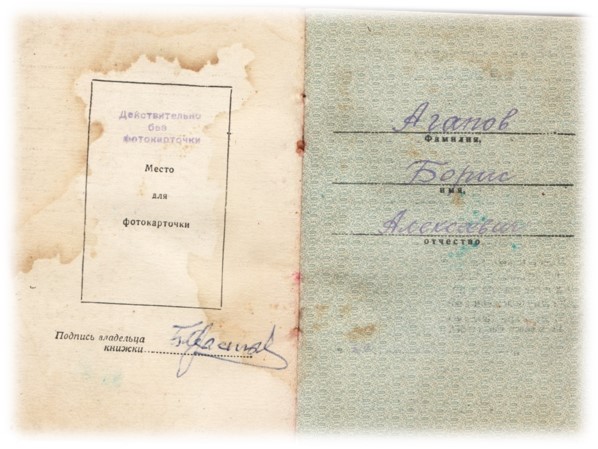 Действительно
без
фотокарточки
Место
для
фотокарточки
Подпись владельца
книжки
Агапов
Фамилия,
Борис
имя,
отчество